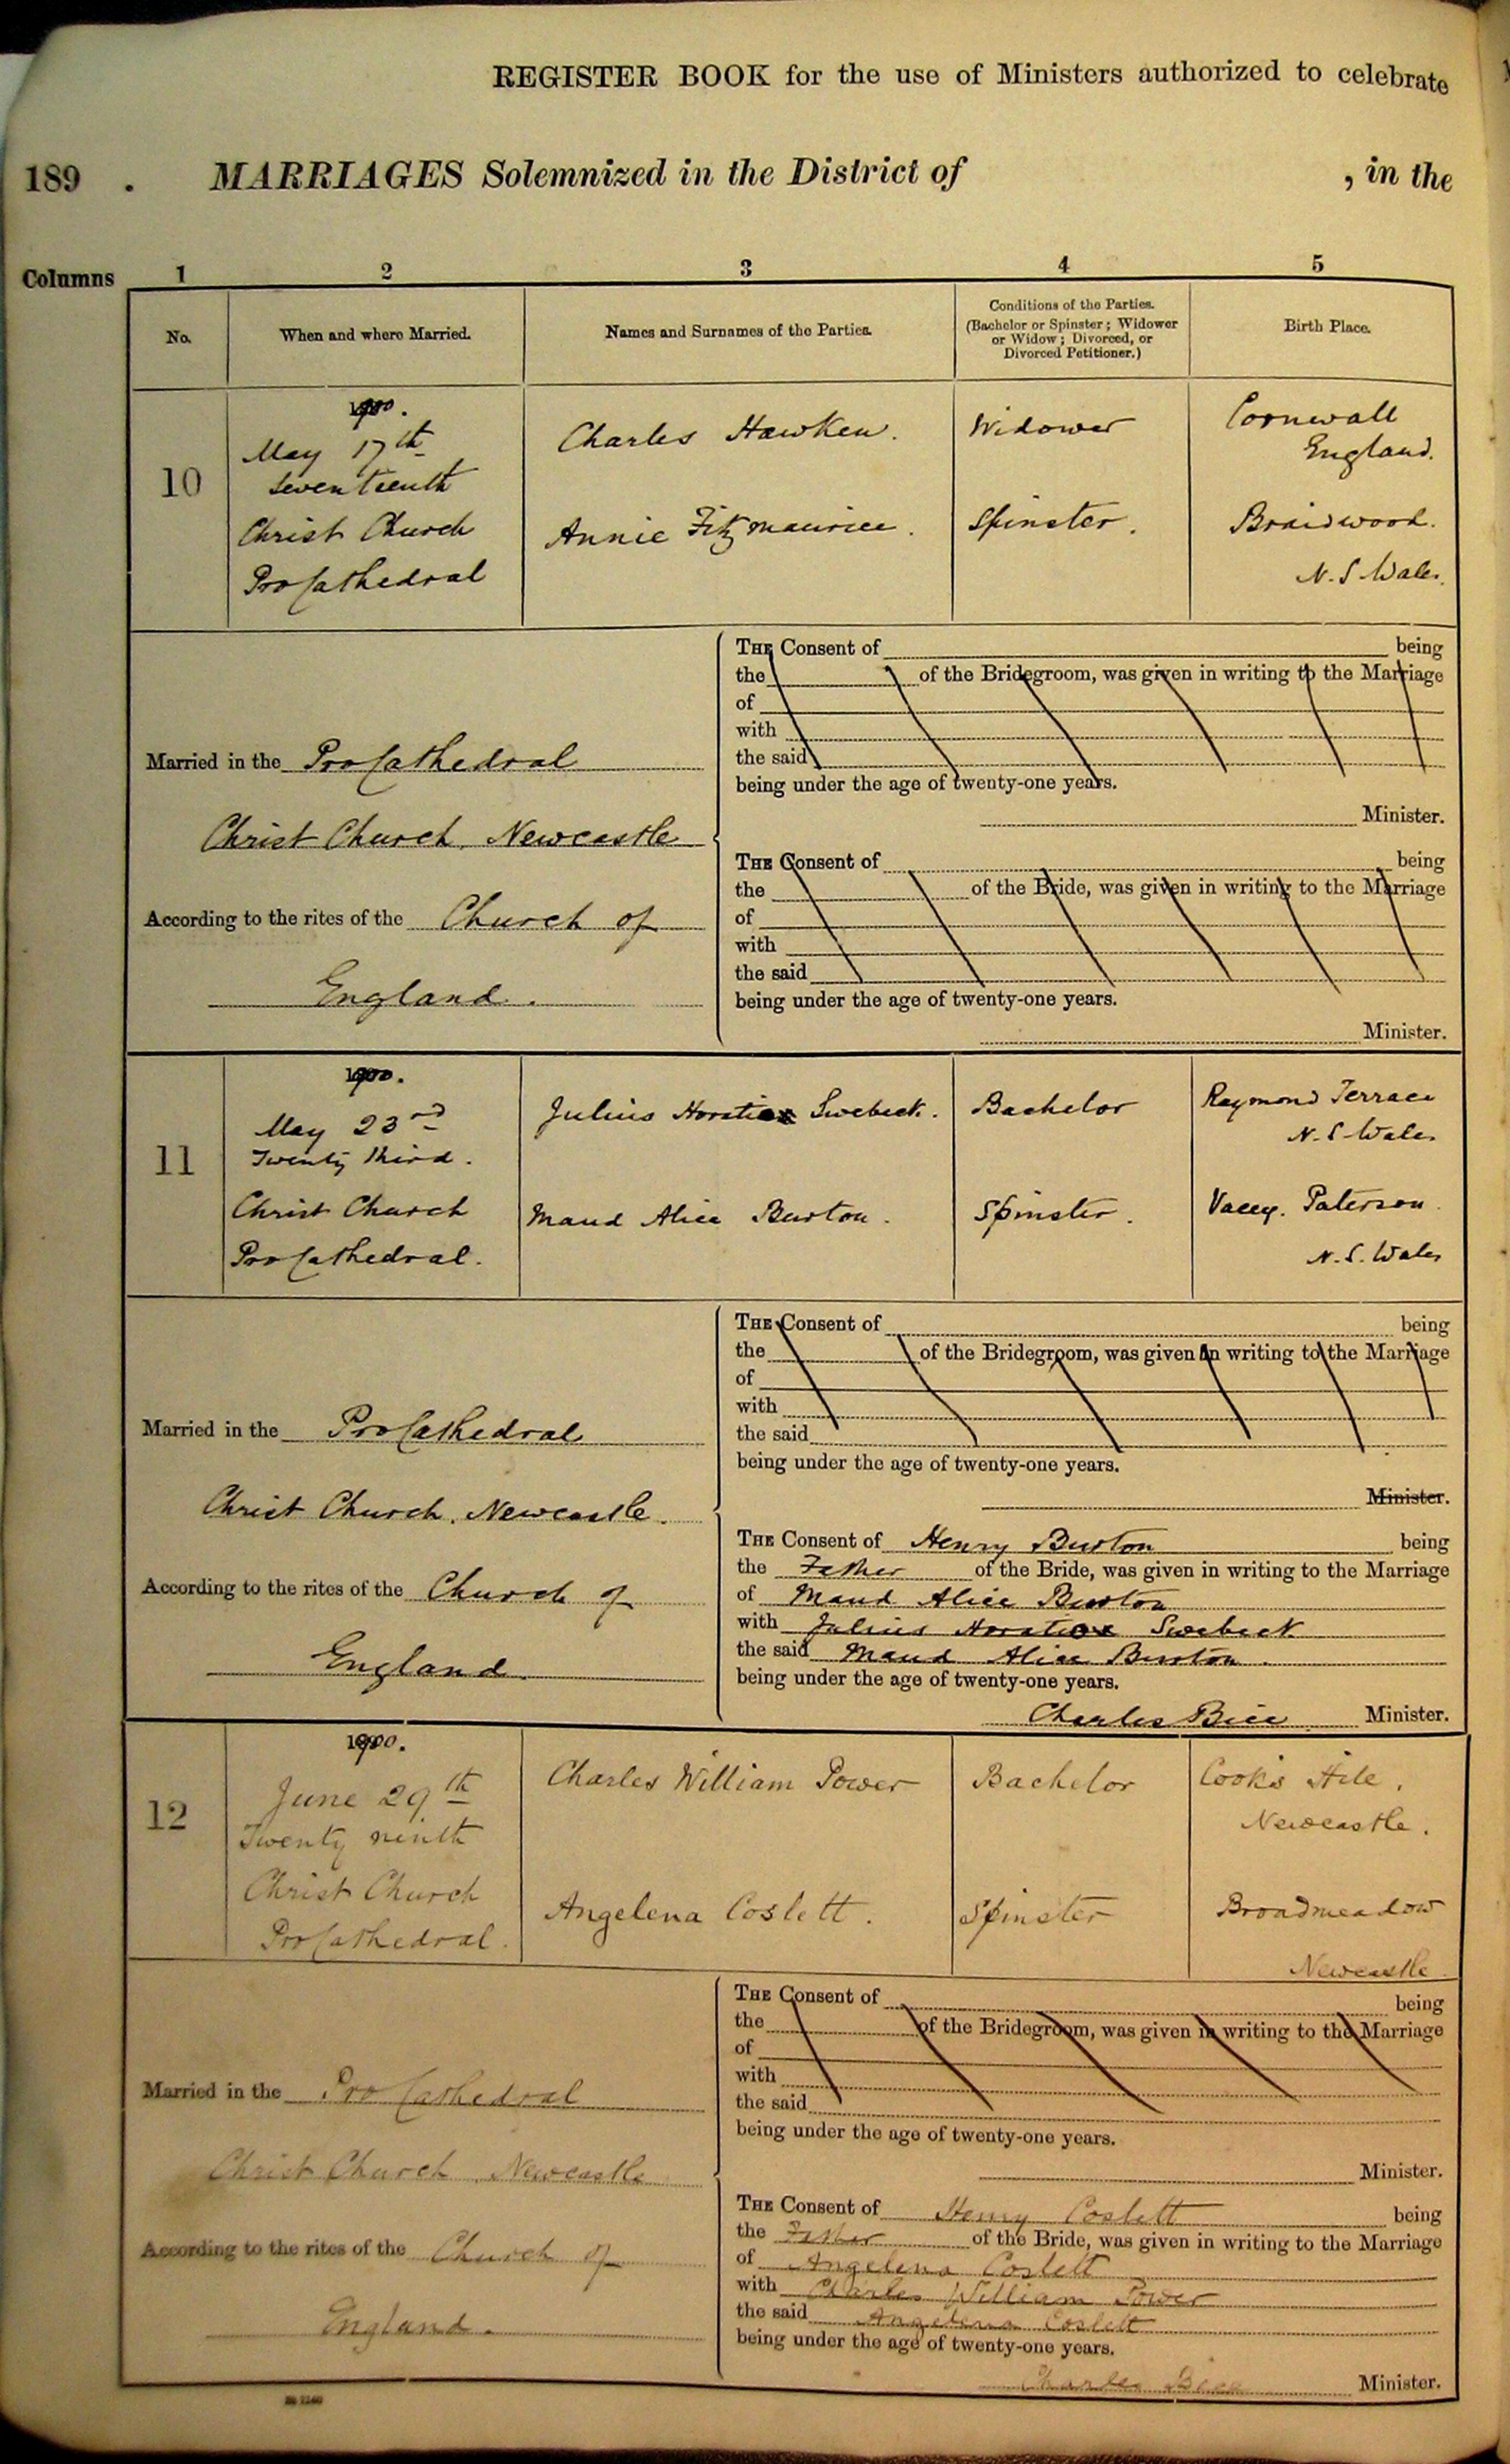 REGISTER BOOK for the use of Ministers authorized to celebrate
189 . MARRIAGES Solemnized in the District of , in the
Columns 1 2 3 4 5
No. When and where Married. Names and Surnames of the Parties. Conditions of the Parties. (Bachelor or Spinster; Widower or Widow; Divorced, or Divorced Petitioner.) Birth Place.
10
1900.
May 17th
Seventeenth
Christ Church
ProCathedral
Charles Hawken. Widower Cornwall
England.
Annie Fitzmaurice. Spinster. Braidwood.
N. S Wales.
Married in the ProCathedral
Christ Church, Newcastle
According to the rites of the Church of
England.
THE Consent of being
the of the Bridegroom, was given in writing to the Marriage
of
with
the said
being under the age of twenty-one years.
Minister.
THE Consent of being
the of the Bride, was given in writing to the Marriage
of
with
the said
being under the age of twenty-one years.
Minister.
11
1900.
May 23rd
Twenty third.
Christ Church
ProCathedral.
Julius Horatio Swebeck. Bachelor Raymond Terrace
N. S Wales
Maud Alice Burton. Spinster. Vacey. Paterson.
N. S. Wales
Married in the ProCathedral
Christ Church, Newcastle.
According to the rites of the Church of
England
THE Consent of being
the of the Bridegroom, was given in writing to the Marriage
of
with
the said
being under the age of twenty-one years.
Minister.
THE Consent of Henry Burton being
the Father of the Bride, was given in writing to the Marriage
of Maud Alice Burton
with Julius Horatio Swebeck
the said Maud Alice Burton.
being under the age of twenty-one years.
Charles Bice Minister.
12
1900.
June 29th
Twenty ninth
Christ Church
ProCathedral.
Charles William Power Bachelor Cooks Hile,
Newcastle.
Angelena Coslett. Spinster Broadmeadow
Newcastle
Married in the Pro Cathedral
Christ Church, Newcastle
According to the rites of the Church of
England.
THE Consent of being
the of the Bridegroom, was given in writing to the Marriage
of
with
the said
being under the age of twenty-one years.
Minister.
THE Consent of Henry Coslett being
the Father of the Bride, was given in writing to the Marriage
of Angelena Coslett
with Charles William Power
the said Angelena Coslett
being under the age of twenty-one years.
Charles Bice Minister.